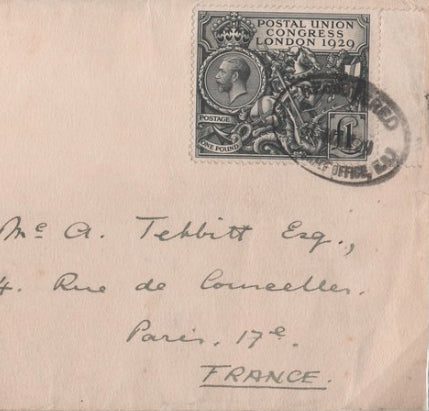 POSTAL UNION
CONGRESS
LONDON 1929
POSTAGE
ONE POUND
£1
REGISTERED
OFFICE,
Mc A. Tebbitt Esq.,
4. Rue de Courcelles.
Paris. 17e.
FRANCE.